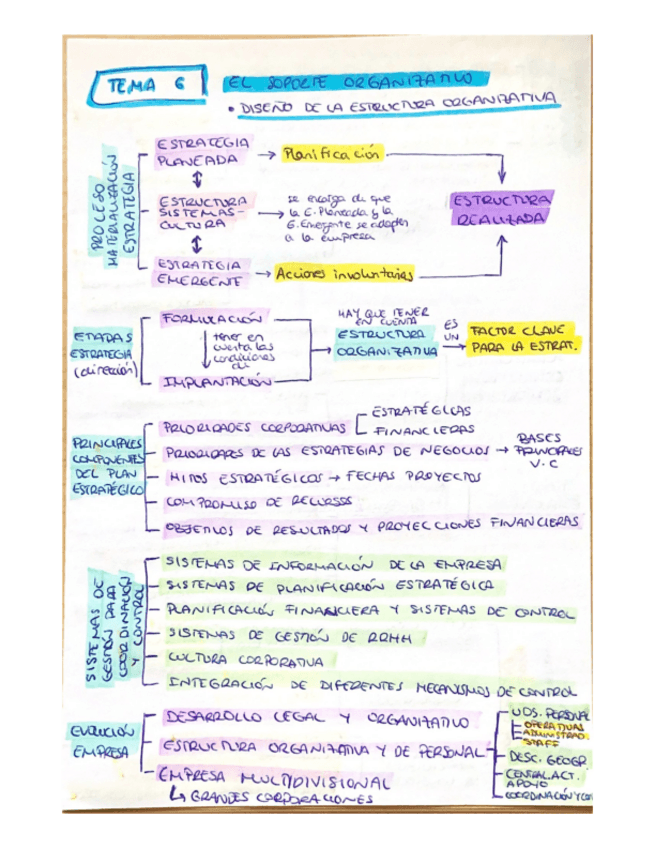 TEMA 6
EL SOPORTE ORGANIZATIVO
• DISEÑO DE LA ESTRUCTURA ORGANIZATIVA
PROCESO
MATERIALIZACIÓN
ESTRATEGIA
ESTRATEGIA
PLANEADA → Planificación
ESTRUCTURA
SISTEMAS-
CULTURA
se encarga de que
la E. Planeada y la
E. Emergente se adapten
a la empresa
ESTRATEGIA
EMERGENTE → Acciones involuntarias
ESTRUCTURA
REALIZADA
ETAPAS
ESTRATEGIA
(dirección)
FORMULACIÓN
tener en
cuenta las
condiciones
de
IMPLANTACIÓN
HAY QUE TENER
EN CUENTA
ESTRUCTURA
ORGANIZATIVA
ES
UN
FACTOR CLAVE
PARA LA ESTRAT.
PRINCIPALES
COMPONENTES
DEL PLAN
ESTRATÉGICO
PRIORIDADES CORPORATIVAS
ESTRATÉGICAS
FINANCIERAS
PRIORIDADES DE LAS ESTRATEGIAS DE NEGOCIOS →
BASES
PRINCIPALES
V.C
HITOS ESTRATÉGICOS → FECHAS PROYECTOS
COMPROMISO DE RECURSOS
OBJETIVOS DE RESULTADOS Y PROYECCIONES FINANCIERAS
SISTEMAS DE
GESTIÓN PARA
COORDINACIÓN
Y CONTROL
SISTEMAS DE INFORMACIÓN DE LA EMPRESA
SISTEMAS DE PLANIFICACIÓN ESTRATÉGICA
PLANIFICACIÓN FINANCIERA Y SISTEMAS DE CONTROL
SISTEMAS DE GESTIÓN DE RRHH
CULTURA CORPORATIVA
INTEGRACIÓN DE DIFERENTES MECANISMOS DE CONTROL
EVOLUCIÓN
EMPRESA
DESARROLLO LEGAL Y ORGANIZATIVO
ESTRUCTURA ORGANIZATIVA Y DE PERSONAL
EMPRESA MULTIDIVISIONAL
↳ GRANDES CORPORACIONES
UDS. PERSONAL
OPERATIVAS
ADMINISTRAD.
STAFF
DESC. GEOGR.
CENTRAL. ACT.
APOYO
COORDINACIÓN Y CO